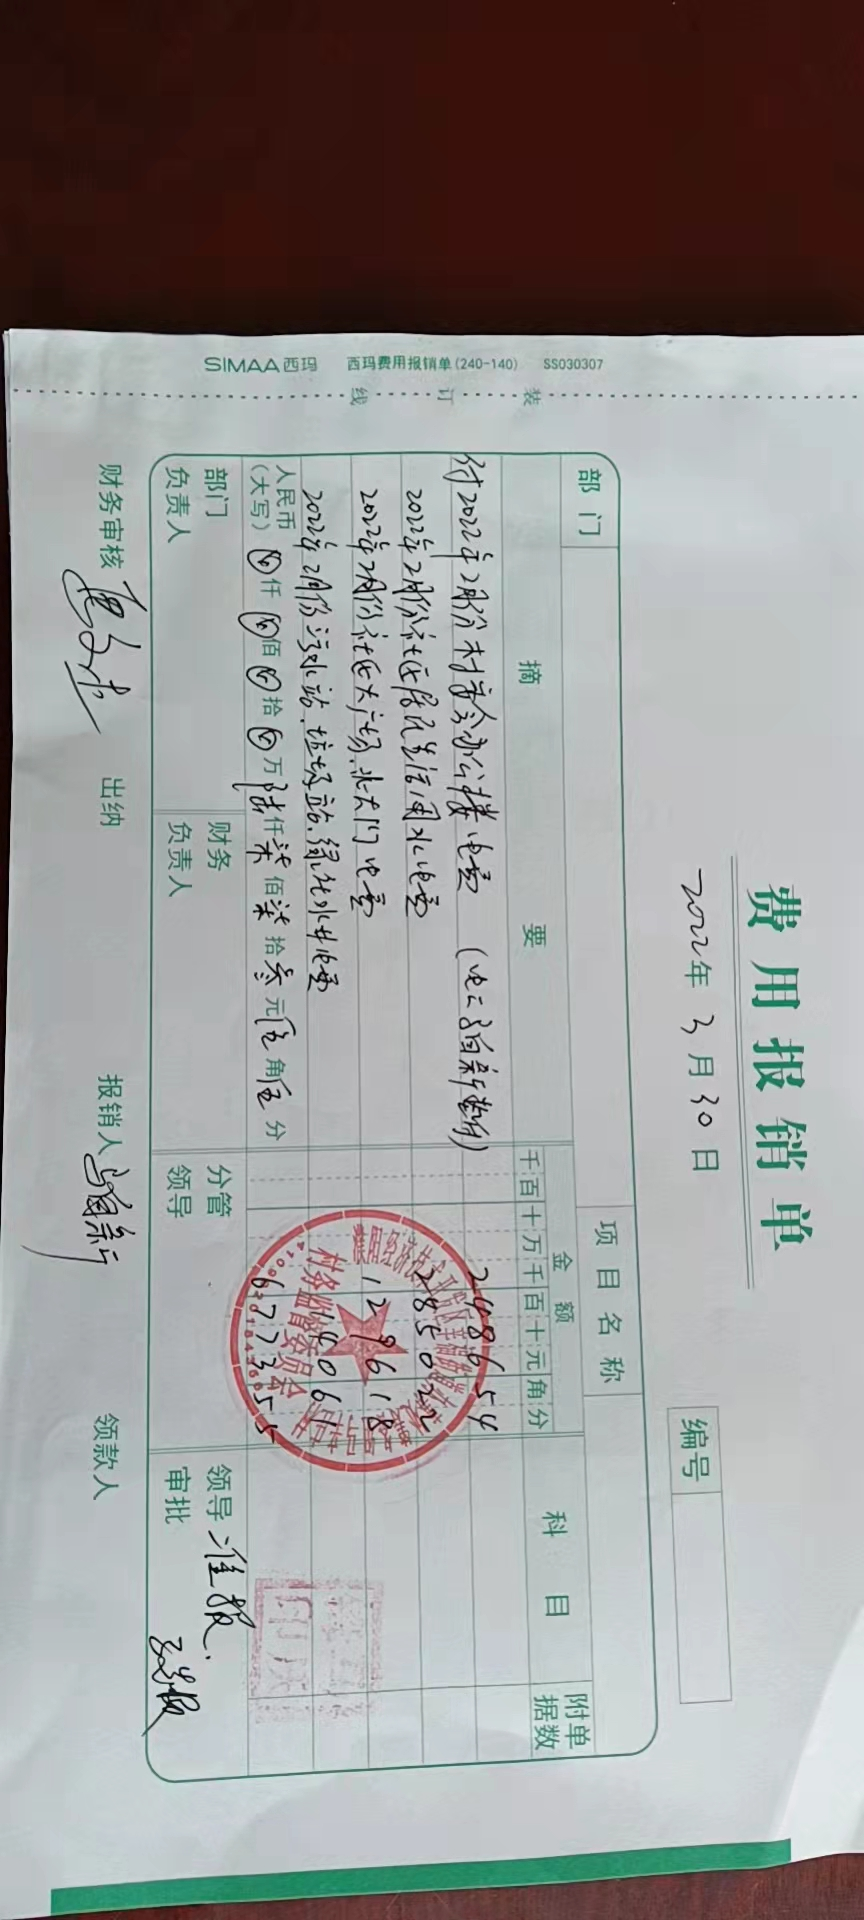 SIMAA西玛 西玛费用报销单(240-140) SS030307
装 订 线
费用报销单
2022年3月30日
编号
部门
项目名称
摘要
金额
科目
附单据数
千百十万千百十元角分
付2022年2月份村委会办公楼电费
248654
2022年2月份社区居民生活用水电费
285022
2022年2月份社区大广场、北大门电费
129618
2022年2月份污水站、垃圾站、绿化水井电费
14061
人民币(大写) 仟 佰 拾 万 陆仟柒佰柒拾叁元伍角伍分
677355
部门负责人
财务负责人
分管领导
领导审批 准报
财务审核
出纳
报销人
领款人
村务监督委员会